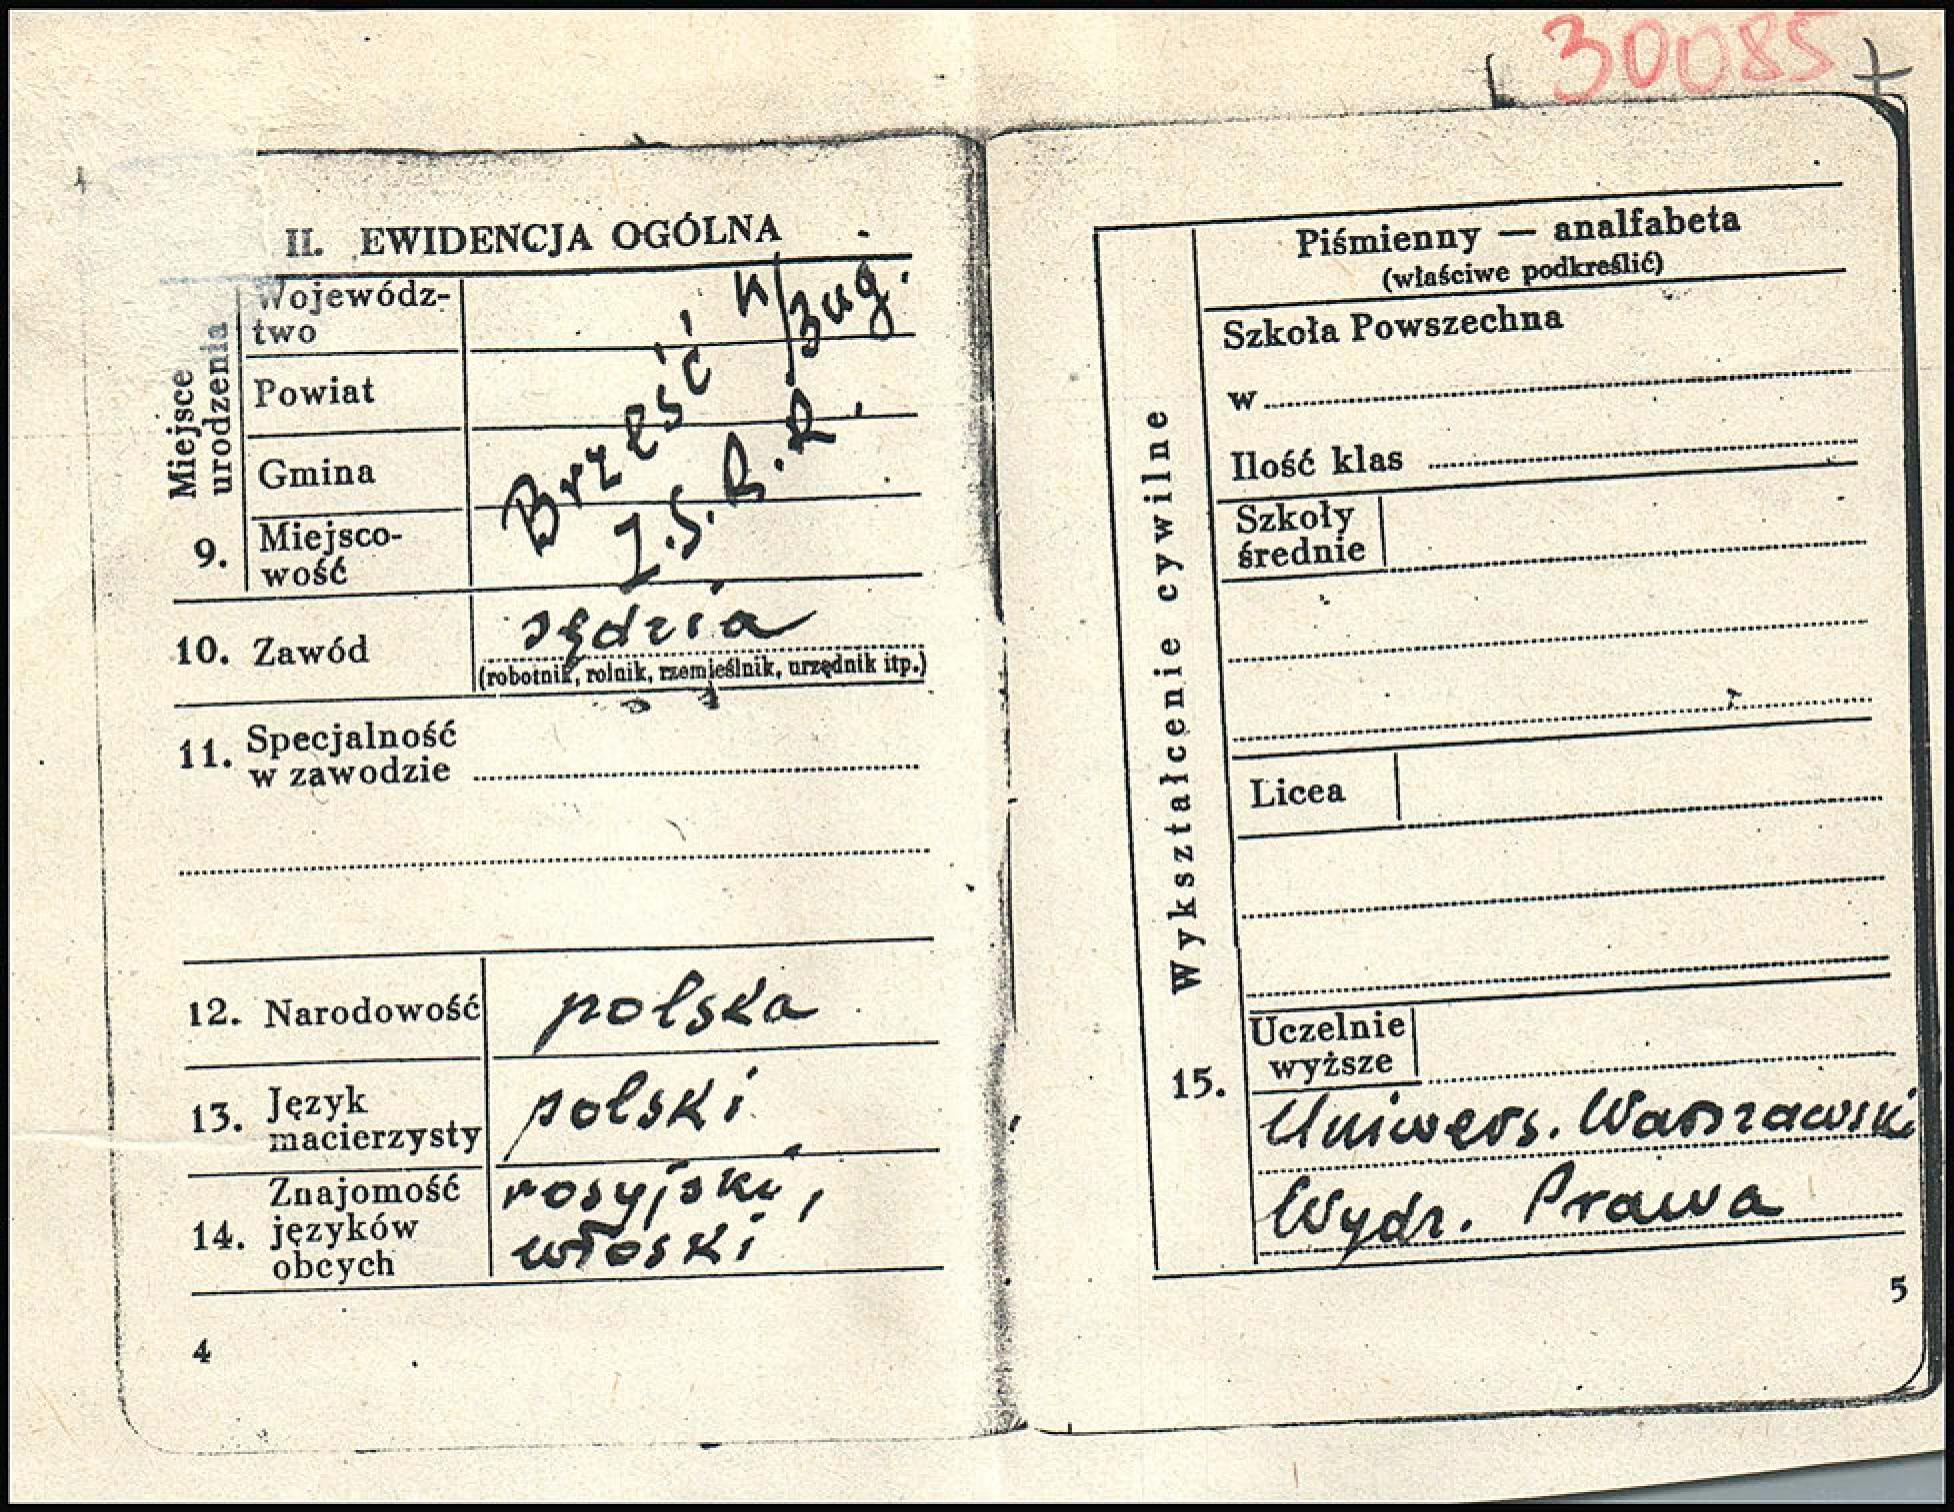 30085
II. EWIDENCJA OGÓLNA
Miejsce urodzenia
Wojewódz-
two
Powiat
Gmina
9. Miejsco-
wość
Brześć n/Bug.
Z.S.R.R.
10. Zawód sędzia
(robotnik, rolnik, rzemieślnik, urzędnik itp.)
11. Specjalność
w zawodzie
12. Narodowość polska
13. Język
macierzysty polski
14. Znajomość
języków
obcych
rosyjski,
włoski
4
Piśmienny — analfabeta
(właściwe podkreślić)
Szkoła Powszechna
w
Ilość klas
Szkoły
średnie
Licea
Wykształcenie cywilne
15. Uczelnie
wyższe
Uniwers. Warszawski
Wydz. Prawa
5